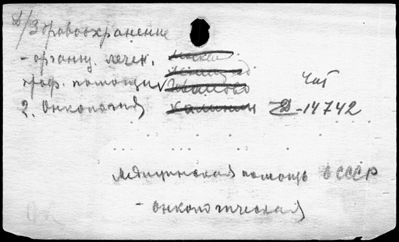 Д/Здравоохранение
- организ. лечен.
проф. помощи Иваново
2. Онкология Калинин Чат Д-14742
Медицинская помощь в СССР
- онкологическая